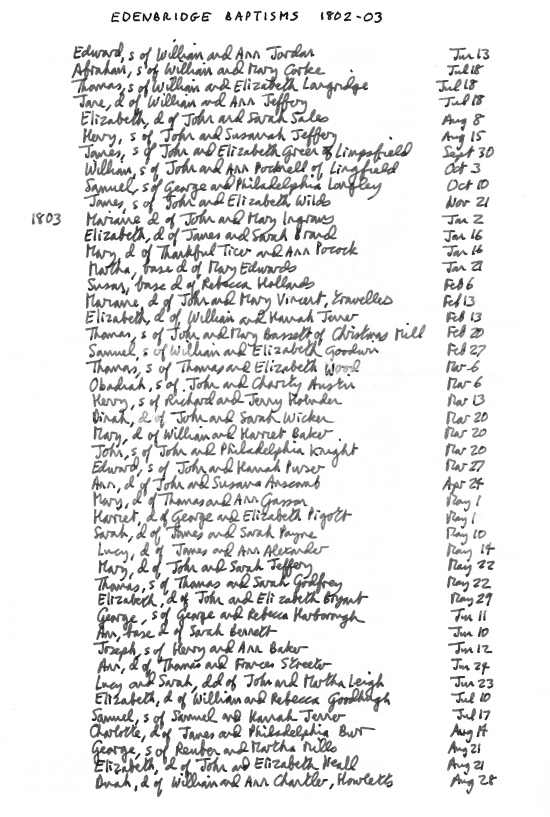 EDENBRIDGE BAPTISMS 1802-03
Edward, s of William and Ann Jordan Jun 13
Abraham, s of William and Mary Corke Jul 18
Thomas, s of William and Elizabeth Langridge Jul 18
Jane, d of William and Ann Jeffery Jul 18
Elizabeth, d of John and Sarah Sales Aug 8
Henry, s of John and Susannah Jeffery Aug 15
James, s of John and Elizabeth Green of Limpsfield Sept 30
William, s of John and Ann Pocknell of Lingfield Oct 3
Samuel, s of George and Philadelphia Longley Oct 10
James, s of John and Elizabeth Wilds Nov 21
1803 Mariane d of John and Mary Ingrams Jan 2
Elizabeth, d of James and Sarah Brand Jan 16
Mary, d of Thankful Ticer and Ann Pocock Jan 16
Martha, base d of Mary Edwards Jan 21
Susan, base d of Rebecca Hollands Feb 6
Mariane, d of John and Mary Vincent, travelles Feb 13
Elizabeth, d of William and Hannah Jenner Feb 13
Thomas, s of John and Mary Bassett of Christmas Mill Feb 20
Samuel, s of William and Elizabeth Goodwin Feb 27
Thomas, s of Thomas and Elizabeth Wood Mar 6
Obadiah, s of John and Charity Austin Mar 6
Henry, s of Richard and Jenny Holmden Mar 13
Dinah, d of John and Sarah Wicker Mar 20
Mary, d of William and Harriet Baker Mar 20
John, s of John and Philadelphia Knight Mar 20
Edward, s of John and Hannah Purser Mar 27
Ann, d of John and Susanna Anscomb Apr 24
Mary, d of Thomas and Ann Gasson May 1
Harriet, d of George and Elizabeth Pigott May 1
Sarah, d of James and Sarah Payne May 10
Lucy, d of James and Ann Alexander May 14
Mary, d of John and Sarah Jeffery May 22
Thomas, s of Thomas and Sarah Godfrey May 22
Elizabeth, d of John and Elizabeth Bryant May 29
George, s of George and Rebecca Harborough Jun 11
Ann, base d of Sarah Bennett Jun 10
Joseph, s of Henry and Ann Baker Jun 12
Ann, d of Thomas and Frances Streeter Jun 24
Lucy and Sarah, dd of John and Martha Leigh Jun 23
Elizabeth, d of William and Rebecca Goodhugh Jul 10
Samuel, s of Samuel and Hannah Jenner Jul 17
Charlotte, d of James and Philadelphia Burr Aug 14
George, s of Reuben and Martha Mills Aug 21
Elizabeth, d of John and Elizabeth Heall Aug 21
Dinah, d of William and Ann Chantler, Howletts Aug 28